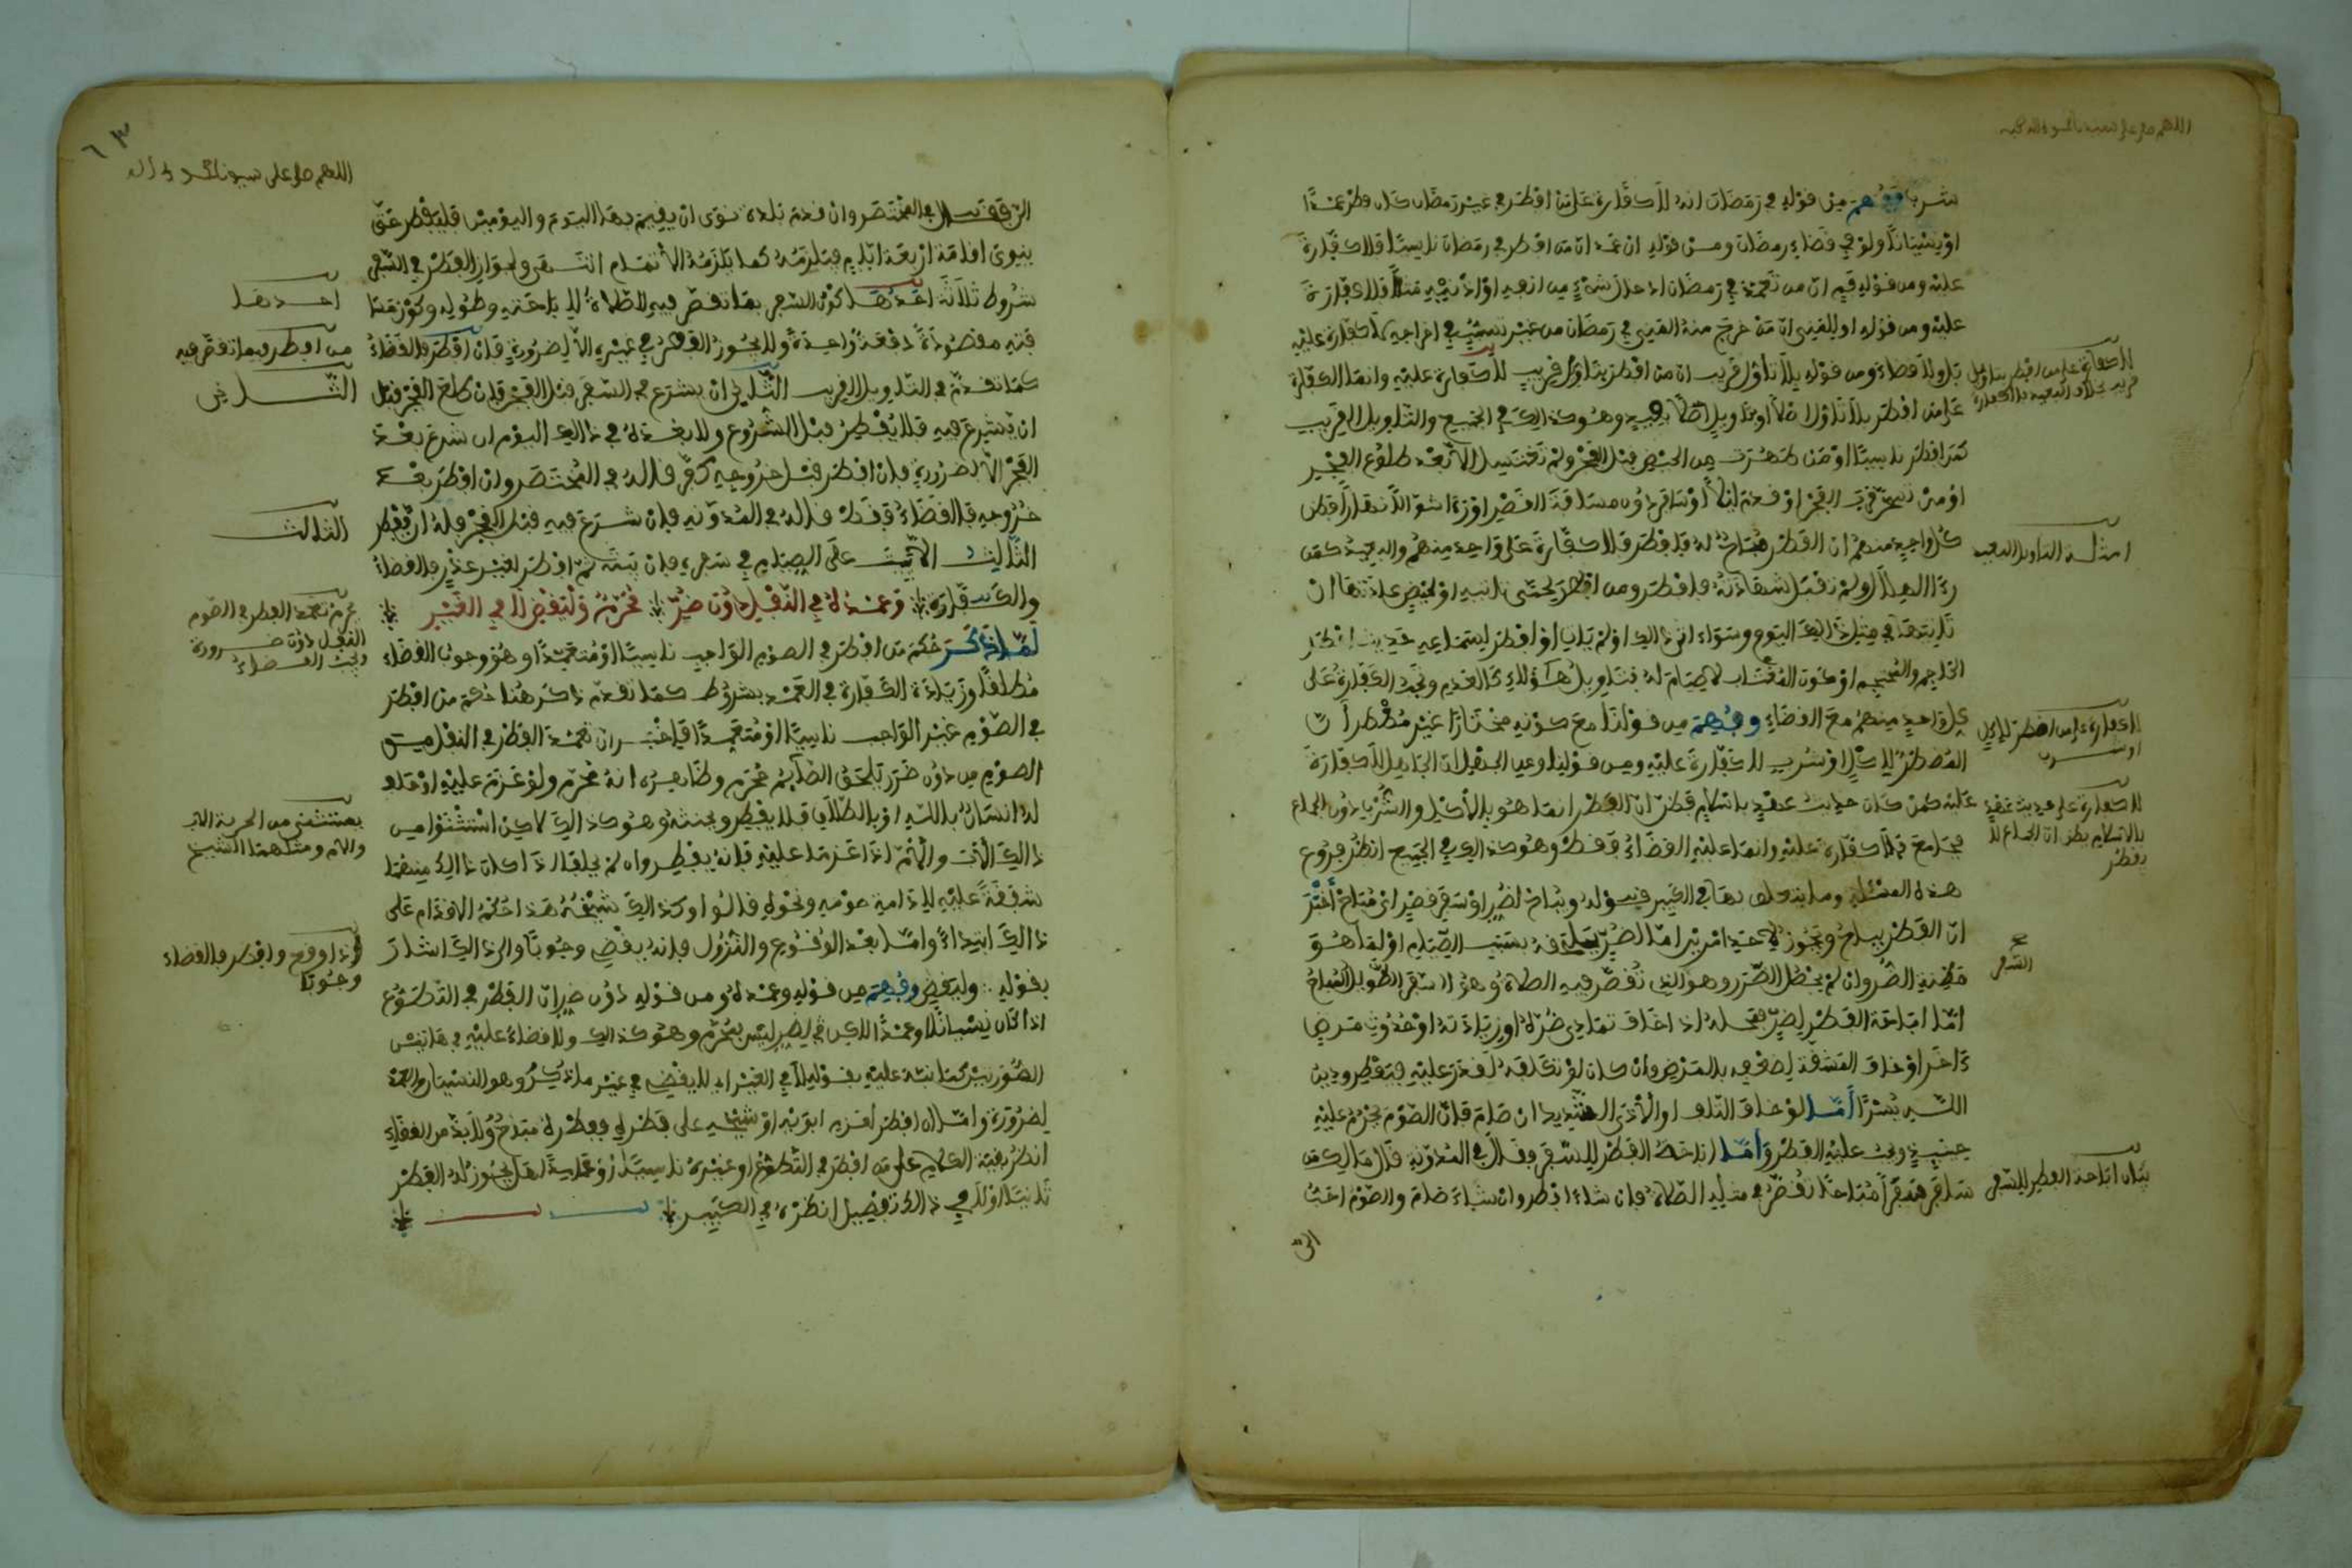 اللهم صل على سيدنا محمد وآله
شربا وفهم من قوله في رمضان انه لا كفارة على من افطر في غير رمضان كان فطره عمدا
او نسيانا ولو في قضاء رمضان ومن قوله ان عمد ان من افطر في رمضان ناسيا فلا كفارة
عليه ومن قوله فم ان من تعمد في رمضان ادخال شيء من انفه او اذنيه مثلا فلا كفارة
عليه ومن قوله او للمني ان من خرج منه المني في رمضان من غير تسبب في اخراجه لا كفارة عليه
بل ولا قضاء ومن قوله بلا تأول قريب ان من افطر بتاول قريب لا كفارة عليه وانما الكفارة
على من افطر بلا تاول اصلا او بتاويل بعيد وهو كذالك في الجميع والتاويل القريب
كمن افطر ناسيا او من طهرت من الحيض قبل الفجر ولم تغتسل الا بعد طلوع الفجر
او من تسحر قرب الفجر او قدم ليلا او سافر دون مسافة القصر او رءا شوالا نهارا فظن
كل واحد منهم ان الفطر مباح له فافطر فلا كفارة على واحد منهم والبعيد كمن
رءا الهلال ولم تقبل شهادته فافطر ومن افطر لحمى تاتيه او لحيض عادتها ان
ياتيها في مثل ذالك اليوم وسواء اتى ذالك او لم يات او افطر لسماعه حديث افطر
الحاجم والمحتجم او كون المغتاب لا صيام له فتاويل هؤلاء كالعدم وتجب الكفارة على
كل واحد منهم مع القضاء وفهم من قولنا مع كونه مختارا غير مضطر ان
المضطر للاكل او شرب لا كفارة عليه ومن قولنا وعن الجهل ان الجاهل لا كفارة
عليه كمن كان حديث عهد باسلام فظن ان الفطر انما هو بالاكل والشرب دون الجماع
فجامع فلا كفارة عليه وانما عليه القضاء فقط وهو كذالك في الجميع انظر فروع
هذه المسئلة وما يتعلق بها في الكبير قوله ويباح لضر او سفر قصر اي مباح اخبر
ان الفطر يباح ويجوز لاحد امرين اما لضر يلحقه بسبب الصيام او لما هو
مظنة الضر وان لم يحصل الضرر وهو الذي تقصر فيه الصلاة وهو السفر الطويل المباح
اما اباحة الفطر لضر فمحله اذا خاف تمادي ضره او زيادته او حدوث مرض
ءاخر او خاف المشقة لضعفه بالمرض وان كان لو تكلفه لقدر عليه فيفطر ودين
الله يسر اما لو خاف التلف او الاذى الشديد ان صام فان الصوم يحرم عليه
حينئذ ويجب عليه الفطر واما اباحة الفطر للسفر فقال في المدونة قال مالك من
سافر سفرا مباحا تقصر في مثله الصلاة فان شاء افطر وان شاء صام والصوم احب
الي
لا كفارة على من افطر بتاويل
قريب بخلاف البعيد فالكفارة
امثلة التاويل البعيد
لا كفارة على من اضطر للاكل
او شرب
لا كفارة على حديث عهد
بالاسلام يظن ان الجماع لا
يفطر
السفر
بيان اباحة الفطر للسفر
٦٣
اللهم صل على سيدنا محمد وآله
في المختصر وان قدم بلدة نوى ان يقيم بها اليوم واليومين فليفطر حتى
ينوي اقامة اربعة ايام فيلزمه كما يلزمه الاتمام انتهى ولجواز الفطر في السفر
شروط ثلاثة احدها كون السفر مما تقصر فيه الصلاة لاباحته وطوله وكونهما
فيه مقصودة دفعة واحدة ولا يجوز الفطر في غيره الا لضرورة فان افطر فالقضاء
كما تقدم في التاويل القريب الثاني ان يشرع في السفر قبل الفجر فان طلع الفجر قبل
ان يشرع فيه فلا يفطر قبل الشروع ولا بعده في ذالك اليوم ان شرع بعد
الفجر الا لضرورة فان افطر قبل خروجه كفر قاله في المختصر وان افطر بعد
خروجه فالقضاء فقط قاله في المدونة فان شرع فيه قبل الفجر فله ان يفطر
الثالث الا يبيت على الصيام في سفره فان بيته ثم افطر لغير عذر فالقضاء
والكفارة وعمده في النفل دون ضر محرم وليقض لا في الغير
لما ذكر حكم من افطر في الصوم الواجب ناسيا او متعمدا وهو وجوب القضاء
مطلقا وزيادة الكفارة في العمد بشروط كما تقدم ذكر هنا حكم من افطر
في الصوم غير الواجب ناسيا او متعمدا فاخبر ان تعمد الفطر في النفل من
الصوم من دون ضرر يلحق الصايم محرم وظاهره انه محرم ولو عزم عليه او حلف
له انسان بالله او بالطلاق فلا يفطر ويحنثه وهو كذالك لاكن استثنوا من
ذالك الاب والام اذا عزما عليه فانه يفطر وان لم يحلفا اذا كان ذالك منهما
شفقة عليه لادامة صومه ونحوه قالوا وكذالك شيخه هذا حكم الاقدام على
ذالك ابتداء واما بعد الوقوع والنزول فانه يقضي وجوبا والى ذالك اشار
بقوله وليقض وفهم من قوله وعمده ومن قوله دون ضر ان الفطر في التطوع
اذا كان نسيانا او عمدا لاكن لضر ليس بمحرم وهو كذالك ولا قضاء عليه في هاتين
الصورتين كما نبه عليه بقوله لا في الغير اي لا يقضي في غير ما ذكر وهو النسيان والعمد
لضرورة واما ان افطر لعزم ابويه او شيخه على فطره ففطره مباح ولا بد من القضاء
انظر بقية الكلام على من افطر في التطوع او غيره ناسيا او عامدا هل يجوز له الفطر
ثانيا او لا وفي ذالك تفصيل انظره في الكبير
احدها
من افطر فيما تقصر فيه
الثاني
الثالث
محرم تعمد الفطر في الصوم
النفل دون ضرورة
ويجب القضاء
يستثنى من الحرمة الاب
والام ومثلهما الشيخ
اذا وقع وافطر فالقضاء
وجوبا